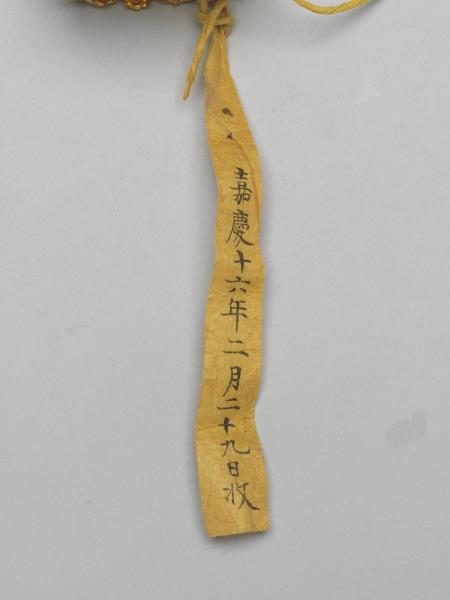 嘉慶十六年二月二十九日收